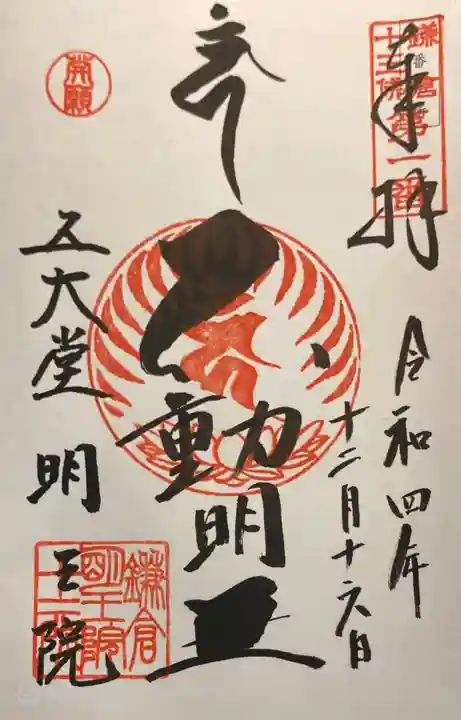 奉拝
鎌倉
十三佛第一番
令和四年
十二月十六日
不動明王
五大堂 明王院
鎌倉
明王院